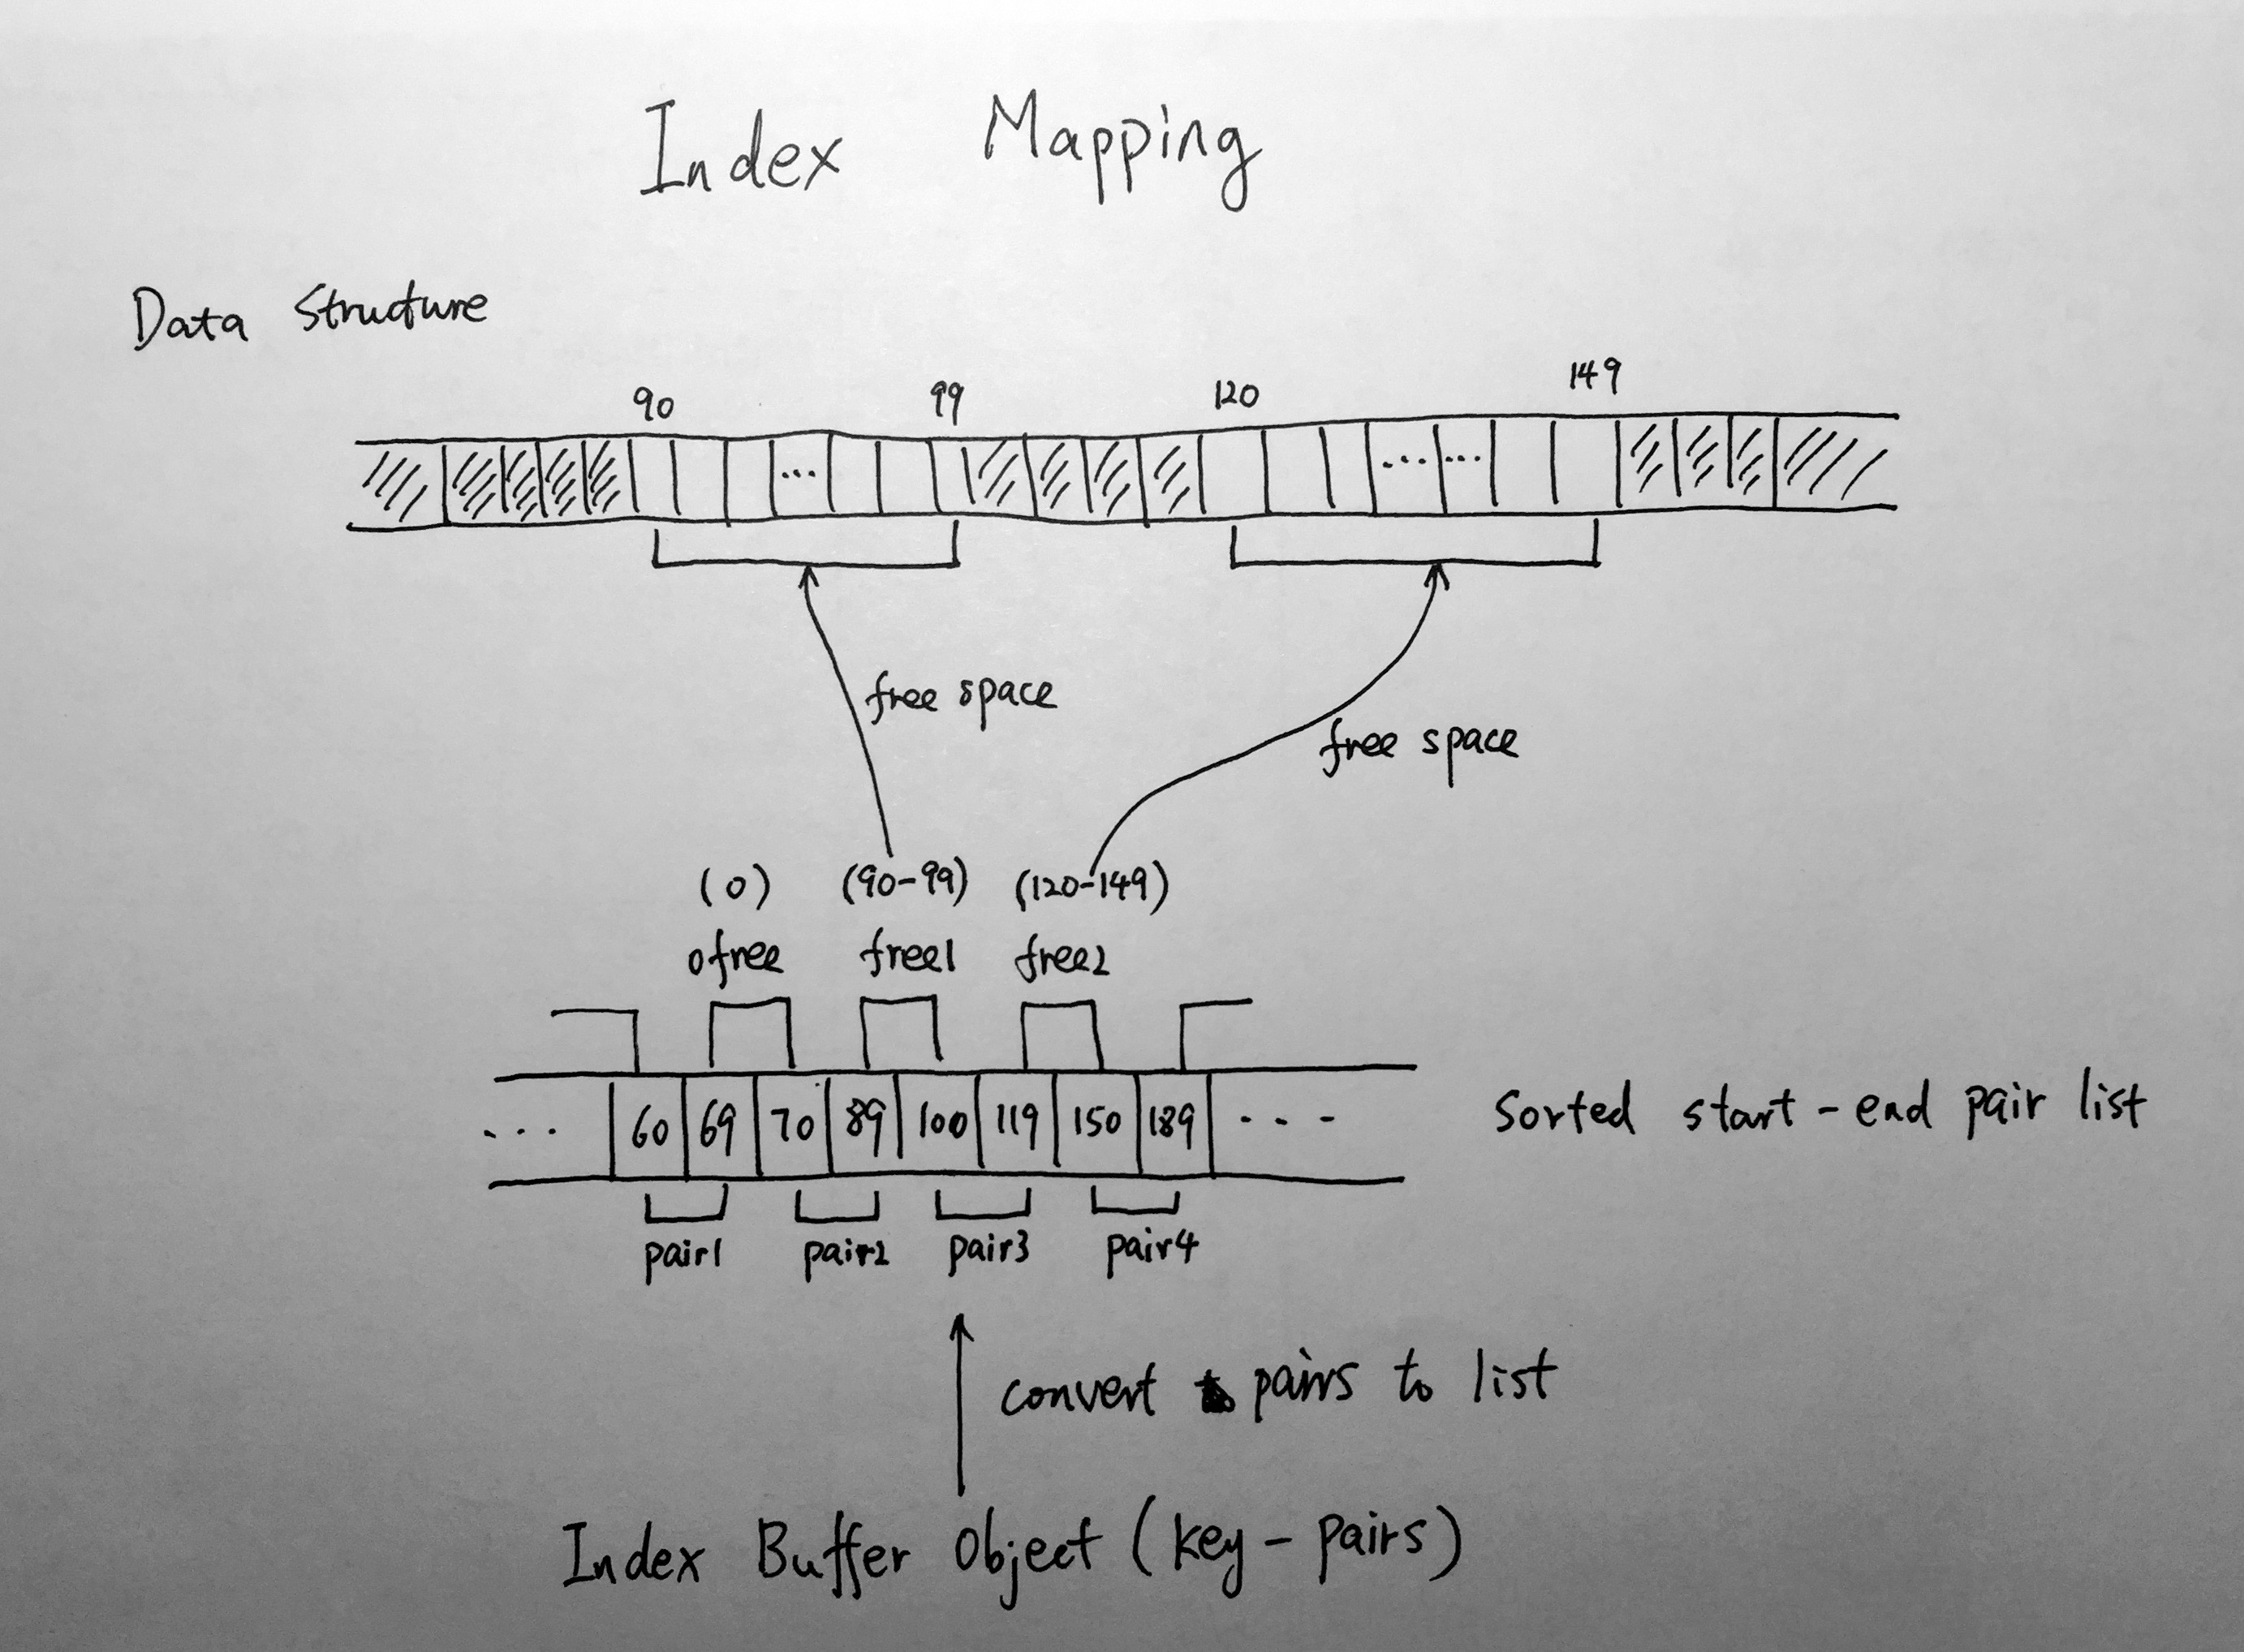 Index Mapping
Data Structure
90 99 120 149
... ... ...
free space
free space
(0) (90-99) (120-149)
0free free1 free2
... 60 69 70 89 100 119 150 189 ...
Sorted start-end pair list
pair1 pair2 pair3 pair4
convert pairs to list
Index Buffer Object (key-pairs)